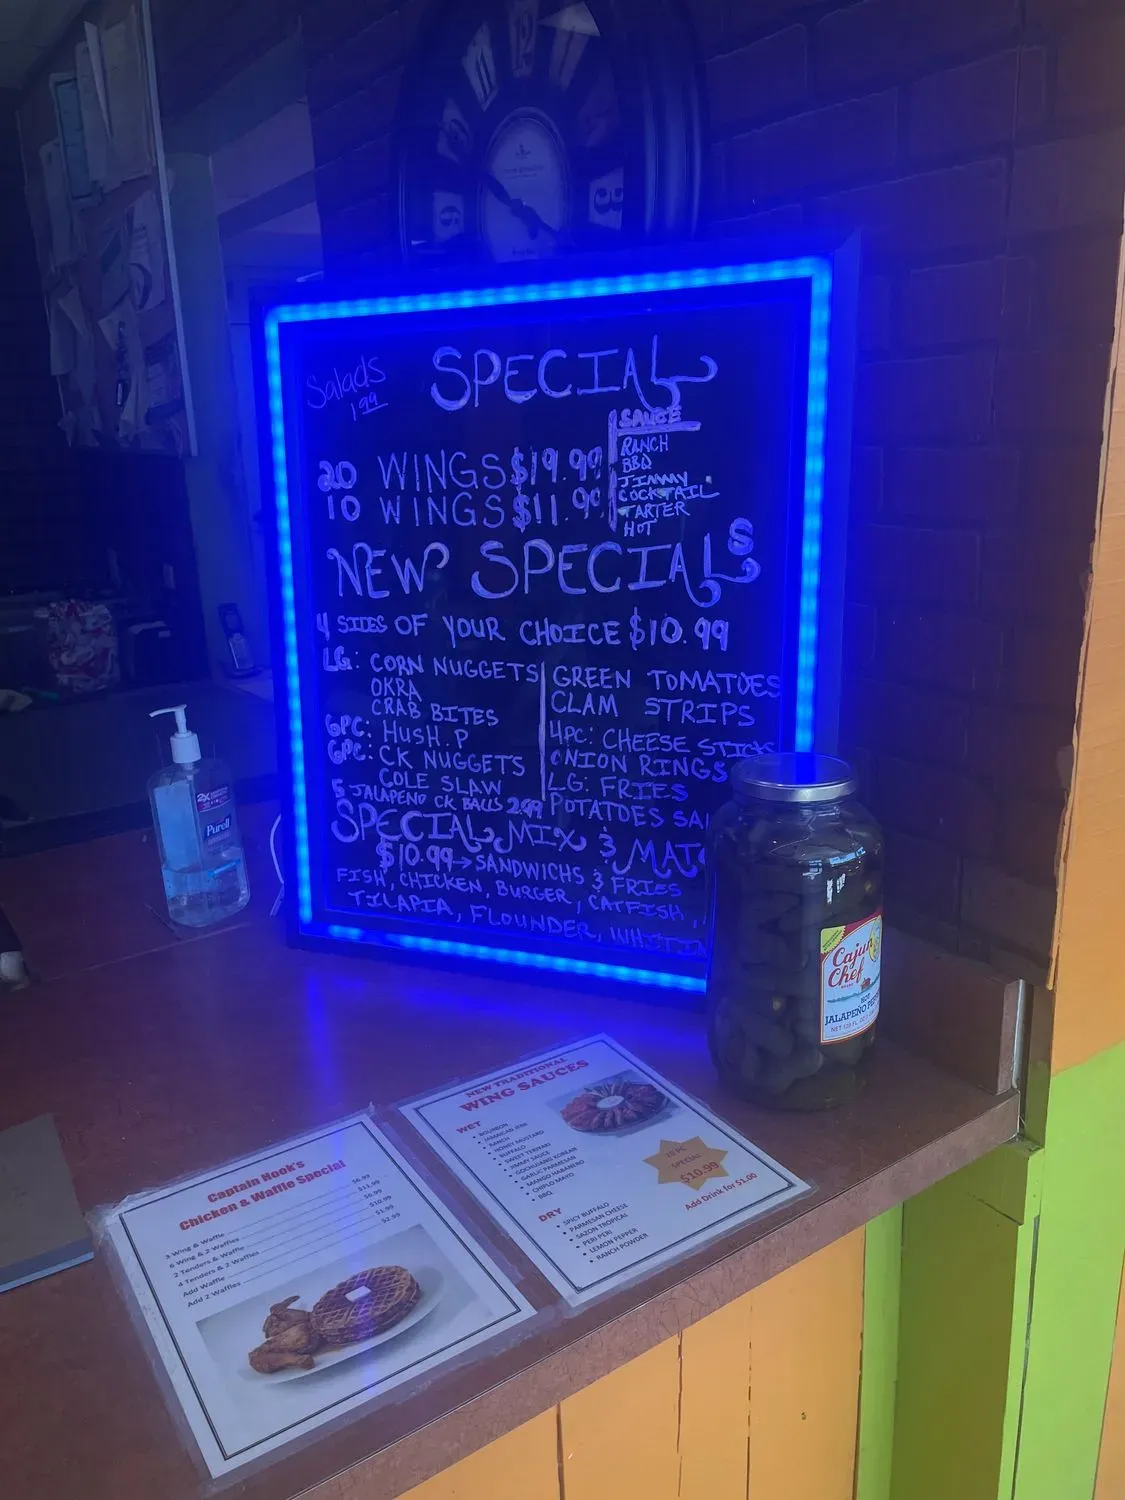 Salads
1.99
SPECIAL
SAUCE
RANCH
BBQ
JIMMY
COCKTAIL
TARTER
HOT
20 WINGS $19.99
10 WINGS $11.99
NEW SPECIALS
4 SIDES OF YOUR CHOICE $10.99
LG: CORN NUGGETS
OKRA
CRAB BITES
6PC: HUSH.P
6PC: CK NUGGETS
COLE SLAW
5 JALAPENO CK BALLS 2.99
GREEN TOMATOES
CLAM STRIPS
4PC: CHEESE STICKS
ONION RINGS
LG: FRIES
POTATOES
SPECIAL MIX &
$10.99→ SANDWICHS & FRIES
FISH, CHICKEN, BURGER, CATFISH,
TILAPIA, FLOUNDER,
2X
Purell
Cajun
Chef
HOT
JALAPEÑO
NEW TRADITIONAL
WING SAUCES
WET
• BOURBON
• JAMAICAN JERK
• RANCH
• HONEY MUSTARD
• BUFFALO
• SWEET TERIYAKI
• JIMMY SAUCE
• GOCHUJANG KOREAN
• GARLIC PARMESAN
• MANGO HABANERO
• CHIPLO MAYO
• BBQ
10 PC
SPECIAL
$10.99
Add Drink for $1.00
DRY
• SPICY BUFFALO
• PARMESAN CHEESE
• SAZON TROPICAL
• PERI PERI
• LEMON PEPPER
• RANCH POWDER
Captain Hook's
Chicken & Waffle Special
3 Wing & Waffle $6.99
6 Wing & 2 Waffles $11.99
2 Tenders & Waffle $6.99
4 Tenders & 2 Waffles $10.99
Add Waffle $1.99
Add 2 Waffles $2.99